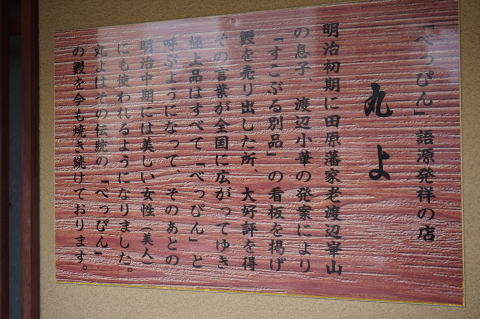 「べっぴん」語源発祥の店
丸よ
明治初期に田原藩家老渡辺崋山
の息子、渡辺小華の発案により
「すこぶる別品」の看板を掲げ
鰻を売り出した所、大好評を得
その言葉が全国に広がってゆき
極上品はすべて「べっぴん」と
呼ぶようになって、そのあとの
明治中期には美しい女性(美人)
にも使われるようになりました。
丸よはその伝統の「べっぴん」
の鰻を今も焼き続けております。